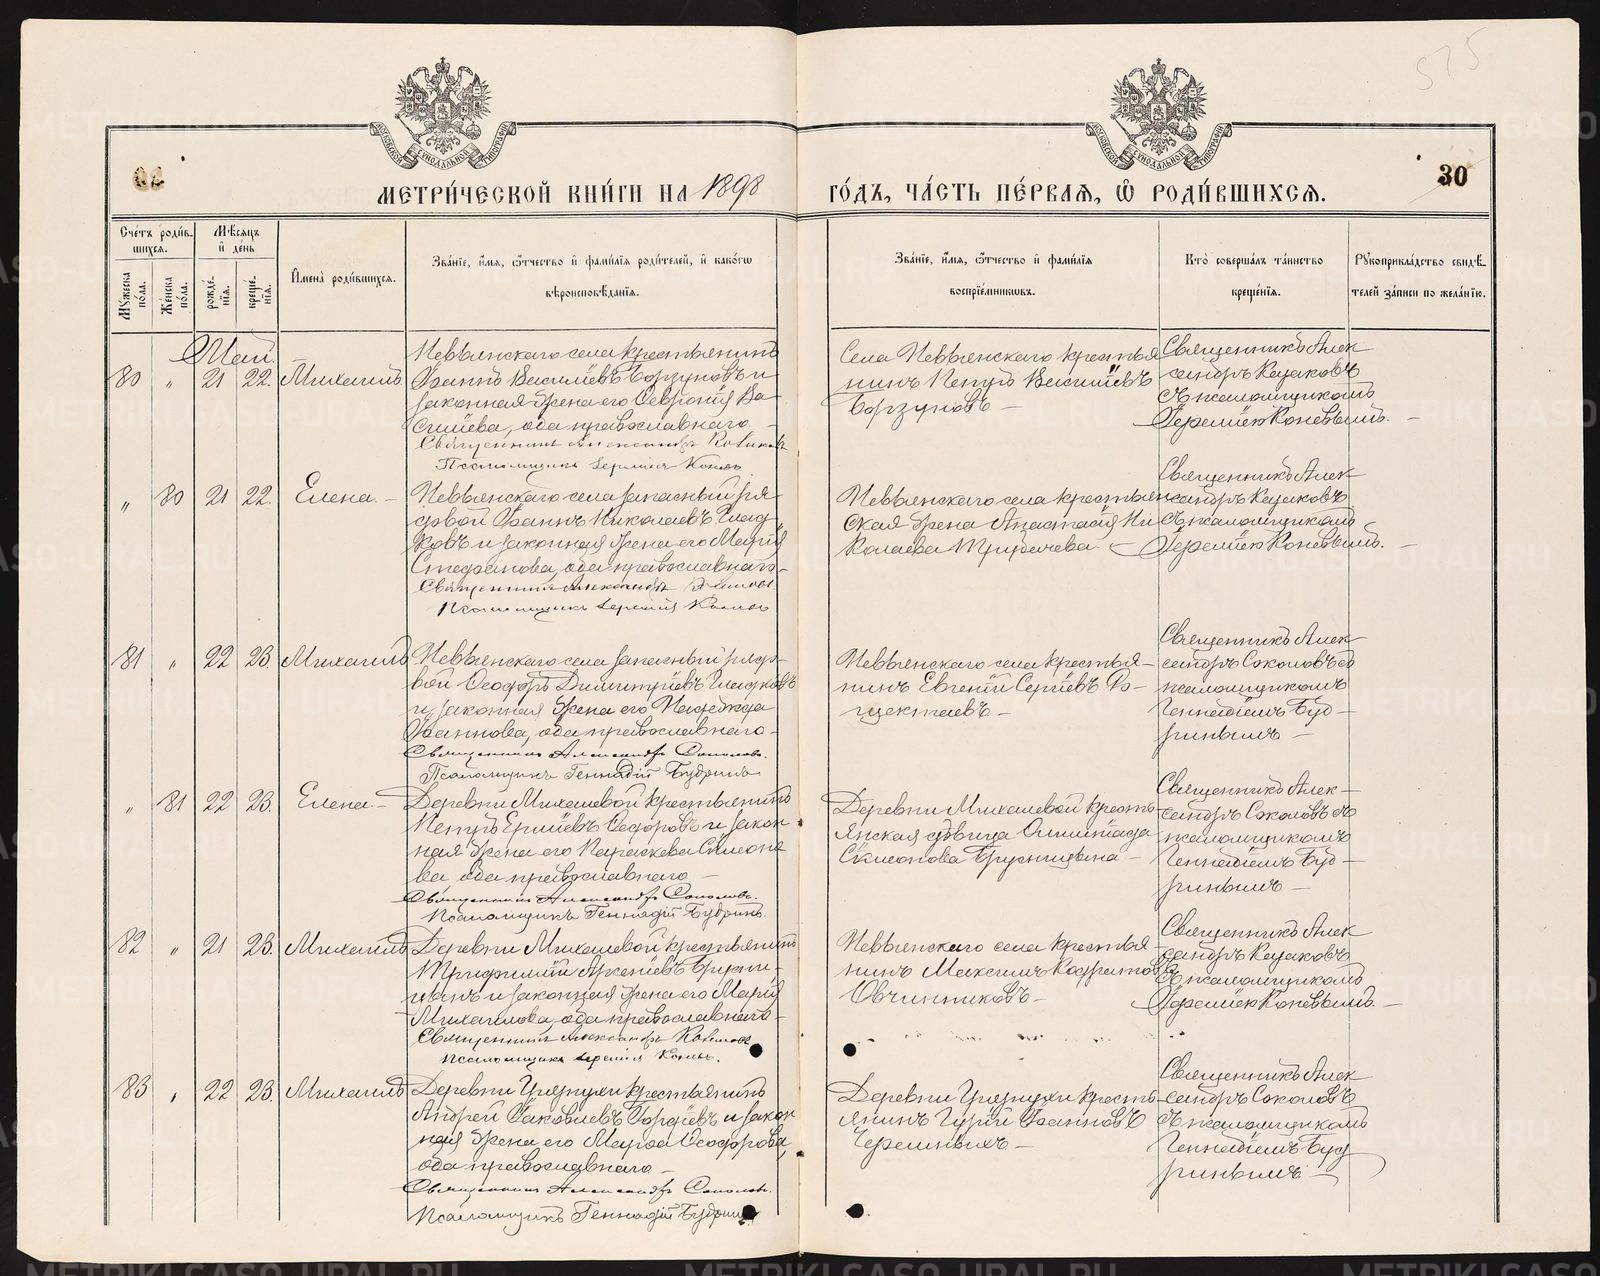 575
МОСКОВСКОЙ СѴНОДАЛЬНОЙ ТИПОГРАФІИ
МОСКОВСКОЙ СѴНОДАЛЬНОЙ ТИПОГРАФІИ
30
МЕТРИ́ЧЕСКОЙ КНИ́ГИ НА 1898
ГО́ДЪ, ЧА́СТЬ ПЕ́РВАѦ, Ѽ РОДИ́ВШИХСѦ.
Сче́тъ роди́в-
шихсѧ.
Мѣ́сѧцъ
и҆ де́нь
Мꙋ́жеска
по́ла.
Же́нска
по́ла.
рожде́-
нїѧ.
креще́-
нїѧ.
И҆мена̀ роди́вшихсѧ.
Зва́нїе, и҆́мѧ, ѻ҆́тчество и҆ фами́лїѧ роди́телей, и҆ како́гѡ
вѣроисповѣ́данїѧ.
Зва́нїе, и҆́мѧ, ѻ҆́тчество и҆ фами́лїѧ
воспрїе́мникѡвъ.
Кто̀ соверша́лъ та́инство
креще́нїѧ.
Рꙋкоприкла́дство свидѣ́-
телей за́писи по жела́нїю.
Май.
80 " 21 22. Михаилъ
Невьянскаго села крестьянинъ
Іоаннъ Васильевъ Борзуновъ и
законная жена его Феврошя Ва
сильева, оба православнаго. –
Священникъ Александръ Казаковъ
Псаломщикъ Іеремія Коневъ
Села Невьянскаго крестья
нинъ Петръ Васильевъ
Борзуновъ –
Священникъ Алек
сандръ Казаковъ
съ псаломщикомъ
Іереміею Коневымъ. –
" 80 21 22. Елена. –
Невьянскаго села запасный ря
довой Іоаннъ Николаевъ Глад
ковъ и законная жена его Марія
Стефанова, оба православнаго –
Священникъ Александръ Казаковъ
Псаломщикъ Іеремія Коневъ
Невьянскаго села крестьян
ская жена Анастасія Ни
колаева Трубачева –
Священникъ Алек
сандръ Казаковъ
съ псаломщикомъ
Іереміею Коневымъ. –
81 " 22 23. Михаилъ
Невьянскаго села запасный рядо-
вой Ѳеодоръ Димитріевъ Гладковъ
и законная жена его Надежда
Іоаннова, оба православнаго –
Священникъ Александръ Соколовъ.
Псаломщикъ Геннадій Будринъ.
Невьянскаго села крестья-
нинъ Евгеній Сергіевъ
Священникъ Алек
сандръ Соколовъ съ
псаломщикомъ
Геннадіемъ Буд –
ринымъ –
" 81 22 23. Елена –
Деревни Михалевой крестьянинъ
Петръ Ѳедоровъ и закон
ная жена его Параскева Симеоно
ва оба православнаго –
Священникъ Александръ Соколовъ.
Псаломщикъ Геннадій Будринъ.
Деревни Михалевой кресть
янская дѣвица Олимпіада
Симеонова Брусницына –
Священникъ Алек –
сандръ Соколовъ съ
псаломщикомъ
Геннадіемъ Буд –
ринымъ –
82 " 21 23. Михаилъ
Деревни Михалевой крестьянинъ
Трифилій Арсеніевъ Брусни-
цынъ и законная жена его Марія
Михаилова, оба православнаго –
Священникъ Александръ Казаковъ
Псаломщикъ Іеремія Коневъ.
Невьянскаго села крестья
нинъ Максимъ Кодратовъ
Овчинниковъ –
Священникъ Алек
сандръ Казаковъ
съ псаломщикомъ
Іереміею Коневымъ. –
83 " 22 23. Михаилъ
Деревни Грязнухи крестьянинъ
Андрей Іаковлевъ Гордѣевъ и закон
ная жена его Марѳа Ѳеодорова,
оба православнаго –
Священникъ Александръ Соколовъ.
Псаломщикъ Геннадій Будринъ
Деревни Грязнухи кресть-
янинъ Гурій Іоанновъ
Черемныхъ –
Священникъ Алек
сандръ Соколовъ
съ псаломщикомъ
Геннадіемъ Буд
ринымъ –